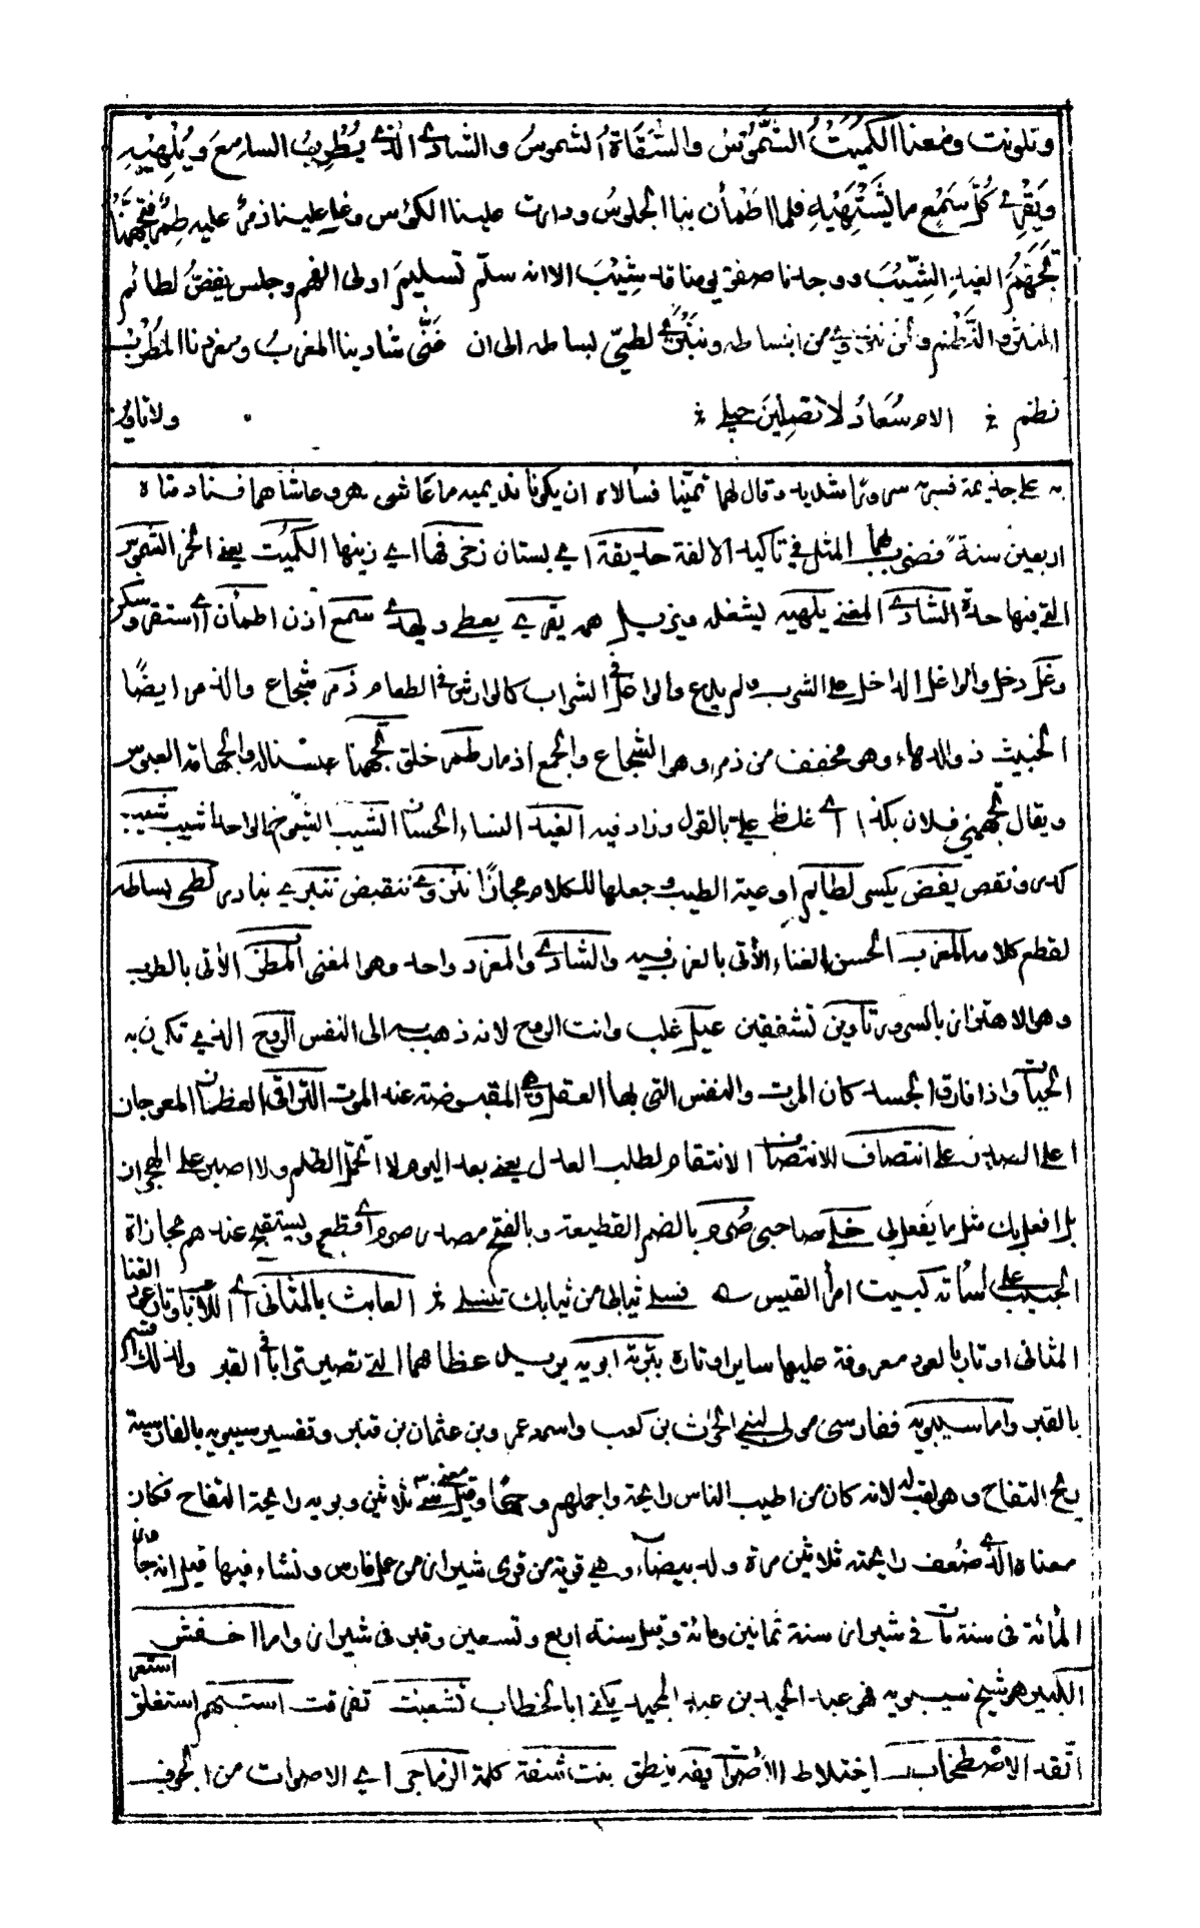 وتلونت ومعنا الكُمَيْتُ الشَّمُوسُ والسُّقَاةُ الشموسُ والشادى الذى يُطْرِبُ السامعَ ويُلهِيْهِ
ويَقْرِى كُلَّ سَمْعٍ ما يَشْتَهِيْهِ فلما اطْمأن بنا الجلوسُ ودارت علينا الكؤس وغل علينا ذمرٌ عليه طِمْرٌ فتجهَّمْنَاهُ
تجهُّمَ الغيدِ الشِّيْبَ ووجدنا صفو يومنا قد شِيْبَ الا انه سلّم تسليمَ اولى الفهم وجلس يفضّ لطائم
النثر والنظم ونحن ننزوى من انبساطه وننبرى لطيّ بساطه الى ان غَنّٰى شادينا المغربُ ومغردنا المُطْرِبُ
نظم الام سُعَادُ لا تصِلِيْنَ حبلى ولا تاوى
به على جذيمة فسر به سرورًا شديدا وقال لهما تمنّيا فسألاه ان يكونا نديميه ما عاشى هو وعاشا هما فنادماه
اربعين سنة فضرب بهما المثل فى تاكيد الالفة حديقة اى بستان زخرفها اى زينها الكميت يعنى الخمر الشموس
التى فيها حدة الشادى المغنى يلهيه يشغله ويزيل همه يقرى يعطى ويهدى سمع أذن اطمأن اى استقر وسكن
وغل دخل والواغل الداخل على الشرب ولم يدع والواغل فى الشراب كالوارش فى الطعام ذمر شجاع والذمر ايضًا
الخبيث ذو الدهاء وهو مخفف من ذمر وهو الشجاع والجمع اذمار طمر خلق تجهمنا عبسنا له والجهامة العبوس
ويقال تجهمنى فلان بكذا اى غلظ على بالقول وزاد فيه الغيد النساء الحسان الشيب الشيوخ الواحد اشيب شيب
كدر ونقص يفض يكسر لطايم اوعية الطيب وجعلها للكلام مجازًا ننزوى ننقبض ننبرى نبادر لطى بساطه
لقطع كلامه المغرب الحسن الغناء الأتى بالغرايب والشادى والمغرد واحد وهو المغنى المطرب الأتى بالطرب
وهو الاهتزاز بالسرور تأوين تشفقين عيل غلب وانت الروح لانه ذهب به الى النفس الروح الذى تكون به
الحياة واذا فارق الجسد كان الموت والنفس التى بها العقل وهى المقبوضة عند الموت التراقى العظمان المعوجان
اعلى الصدر على انتصاف الانتصاف الانتقام لطلب العدل يعنى بعد اليوم لا اتحمل الظلم ولا اصبر على الهجران
بل افعل بك مثل ما يفعل بى خلى صاحبى صُرم بالضم القطيعة وبالفتح مصدر صرم اى قطع ويستقبح عندهم مجازاة
الحبيب على اساته كبيت امرأ القيس فسلى ثيابى من ثيابك تنسلى العابث بالمثانى اى اللاعب باوتار عود الغنا
المثانى اوتار بالعود معروفة عليها ساير اوتاره بتربة ابويه يريد عظامهما التى تصير ترابا فى القبر ولذلك قسم
بالقبر واما سيبويه ففارسى مولى لبنى الحرث بن كعب واسمه عمرو بن عثمان بن قنبر وتفسير سيبويه بالفارسية
ريح التفاح وهو لقب له لانه كان من اطيب الناس رايحة واجملهم وجهًا وقيل معنى سى ثلاثين وبويه رايحة التفاح فكان
معناه الذى ضعف رايحته ثلاثين مرة ولد ببيضاء وهى قرية من قرى شيراز من عمل فارس ونشاء فيها قيل انه جاز
المأئة فى سنه مات فى شيراز سنة ثمانين ومائة وقيل سنة اربع وتسعين وقبره فى شيراز واما اخفش
الكبير هو شيخ سيبويه فهو عبد الحميد بن عبد المجيد يكنى ابا الخطاب تشعبت تفرقت استبهم استغلق
استعر اتقد الاصطخاب اختلاط الاصوات يفه ينطق ببنت شفة كلمة الزماجر اى الاصوات من الجوف